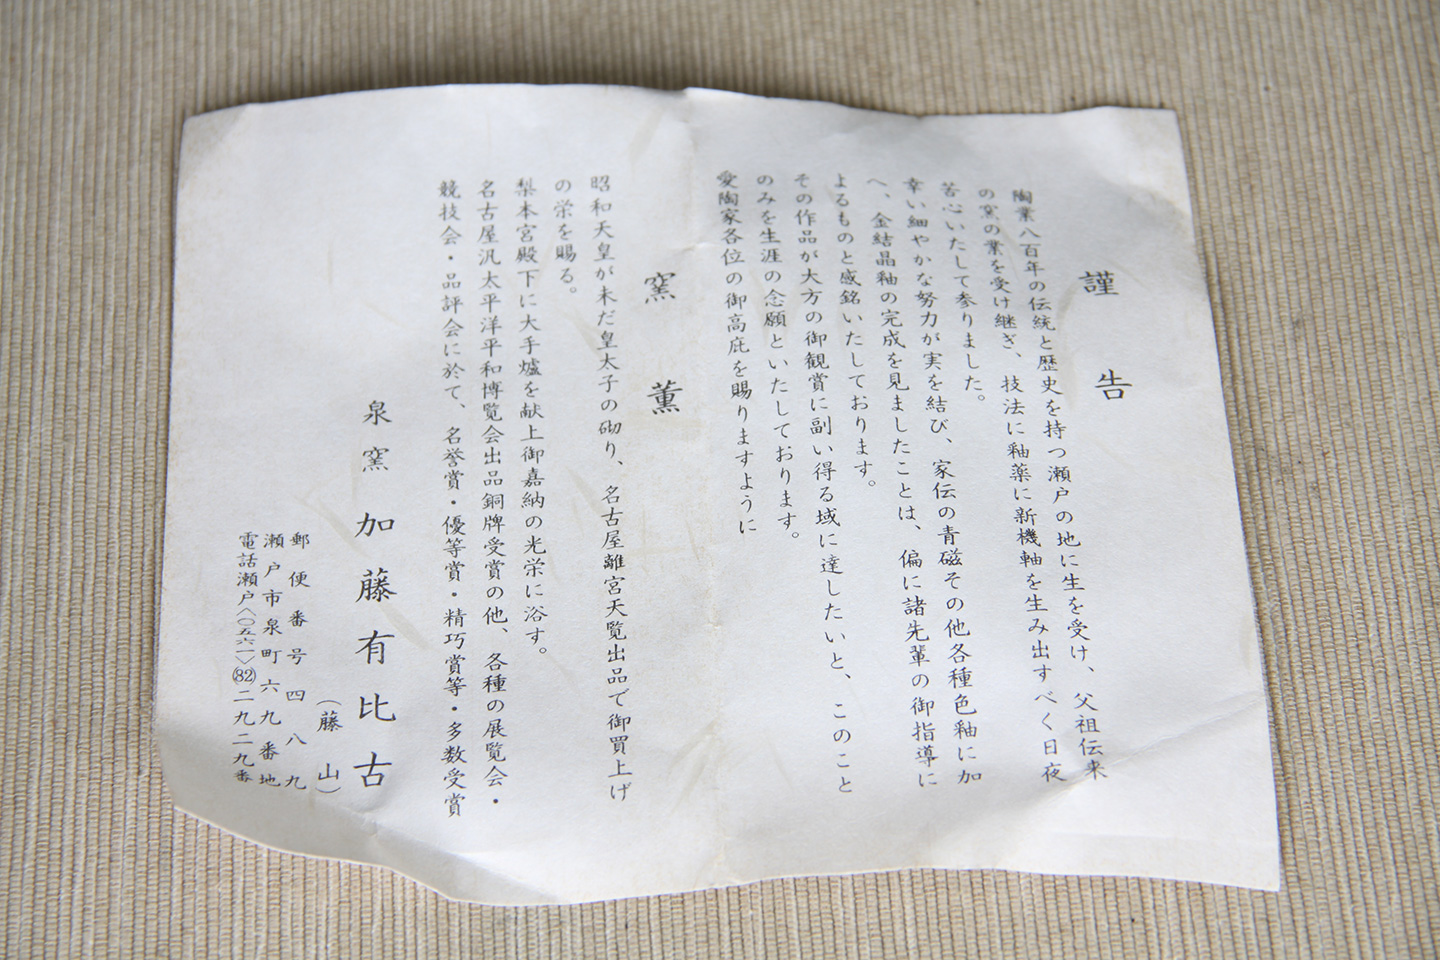 謹告
陶業八百年の伝統と歴史を持つ瀬戸の地に生を受け、父祖伝来
の窯の業を受け継ぎ、技法に釉薬に新機軸を生み出すべく日夜
苦心いたして参りました。
幸い細やかな努力が実を結び、家伝の青磁その他各種色釉に加
へ、金結晶釉の完成を見ましたことは、偏に諸先輩の御指導に
よるものと感銘いたしております。
その作品が大方の御観賞に副い得る域に達したいと、このこと
のみを生涯の念願といたしております。
愛陶家各位の御高庇を賜りますように
窯薫
昭和天皇が未だ皇太子の砌り、名古屋離宮天覧出品で御買上げ
の栄を賜る。
梨本宮殿下に大手爐を献上御嘉納の光栄に浴す。
名古屋汎太平洋平和博覧会出品銅牌受賞の他、各種の展覧会・
競技会・品評会に於て、名誉賞・優等賞・精巧賞等・多数受賞
泉窯 加藤有比古
(藤山)
郵便番号四八九
瀬戸市泉町六九番地
電話瀬戸〈〇五六一〉㊇二九二九番